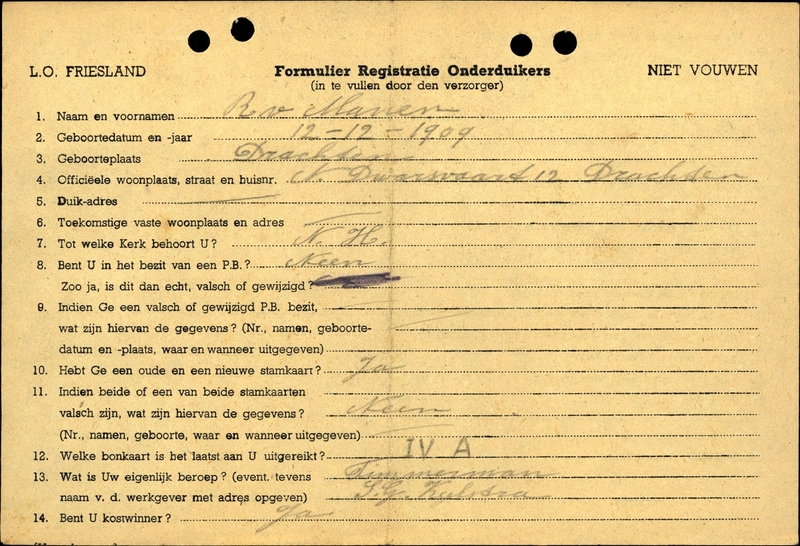 L.O. FRIESLAND Formulier Registratie Onderduikers NIET VOUWEN
(in te vullen door den verzorger)
1. Naam en voornamen R v Manen
2. Geboortedatum en -jaar 12-12-1909
3. Geboorteplaats Drachten
4. Officiëele woonplaats, straat en huisnr. N. Dwarsvaart 12 Drachten
5. Duik-adres
6. Toekomstige vaste woonplaats en adres
7. Tot welke Kerk behoort U? N. H.
8. Bent U in het bezit van een P.B.? Neen
Zoo ja, is dit dan echt, valsch of gewijzigd?
9. Indien Ge een valsch of gewijzigd P.B. bezit,
wat zijn hiervan de gegevens? (Nr., namen, geboorte-
datum en -plaats, waar en wanneer uitgegeven)
10. Hebt Ge een oude en een nieuwe stamkaart? Ja
11. Indien beide of een van beide stamkaarten
valsch zijn, wat zijn hiervan de gegevens? Neen
(Nr., namen, geboorte, waar en wanneer uitgegeven)
12. Welke bonkaart is het laatst aan U uitgereikt? IV A
13. Wat is Uw eigenlijk beroep? (event. tevens Timmerman
naam v. d. werkgever met adres opgeven) S.G.
14. Bent U kostwinner? Ja